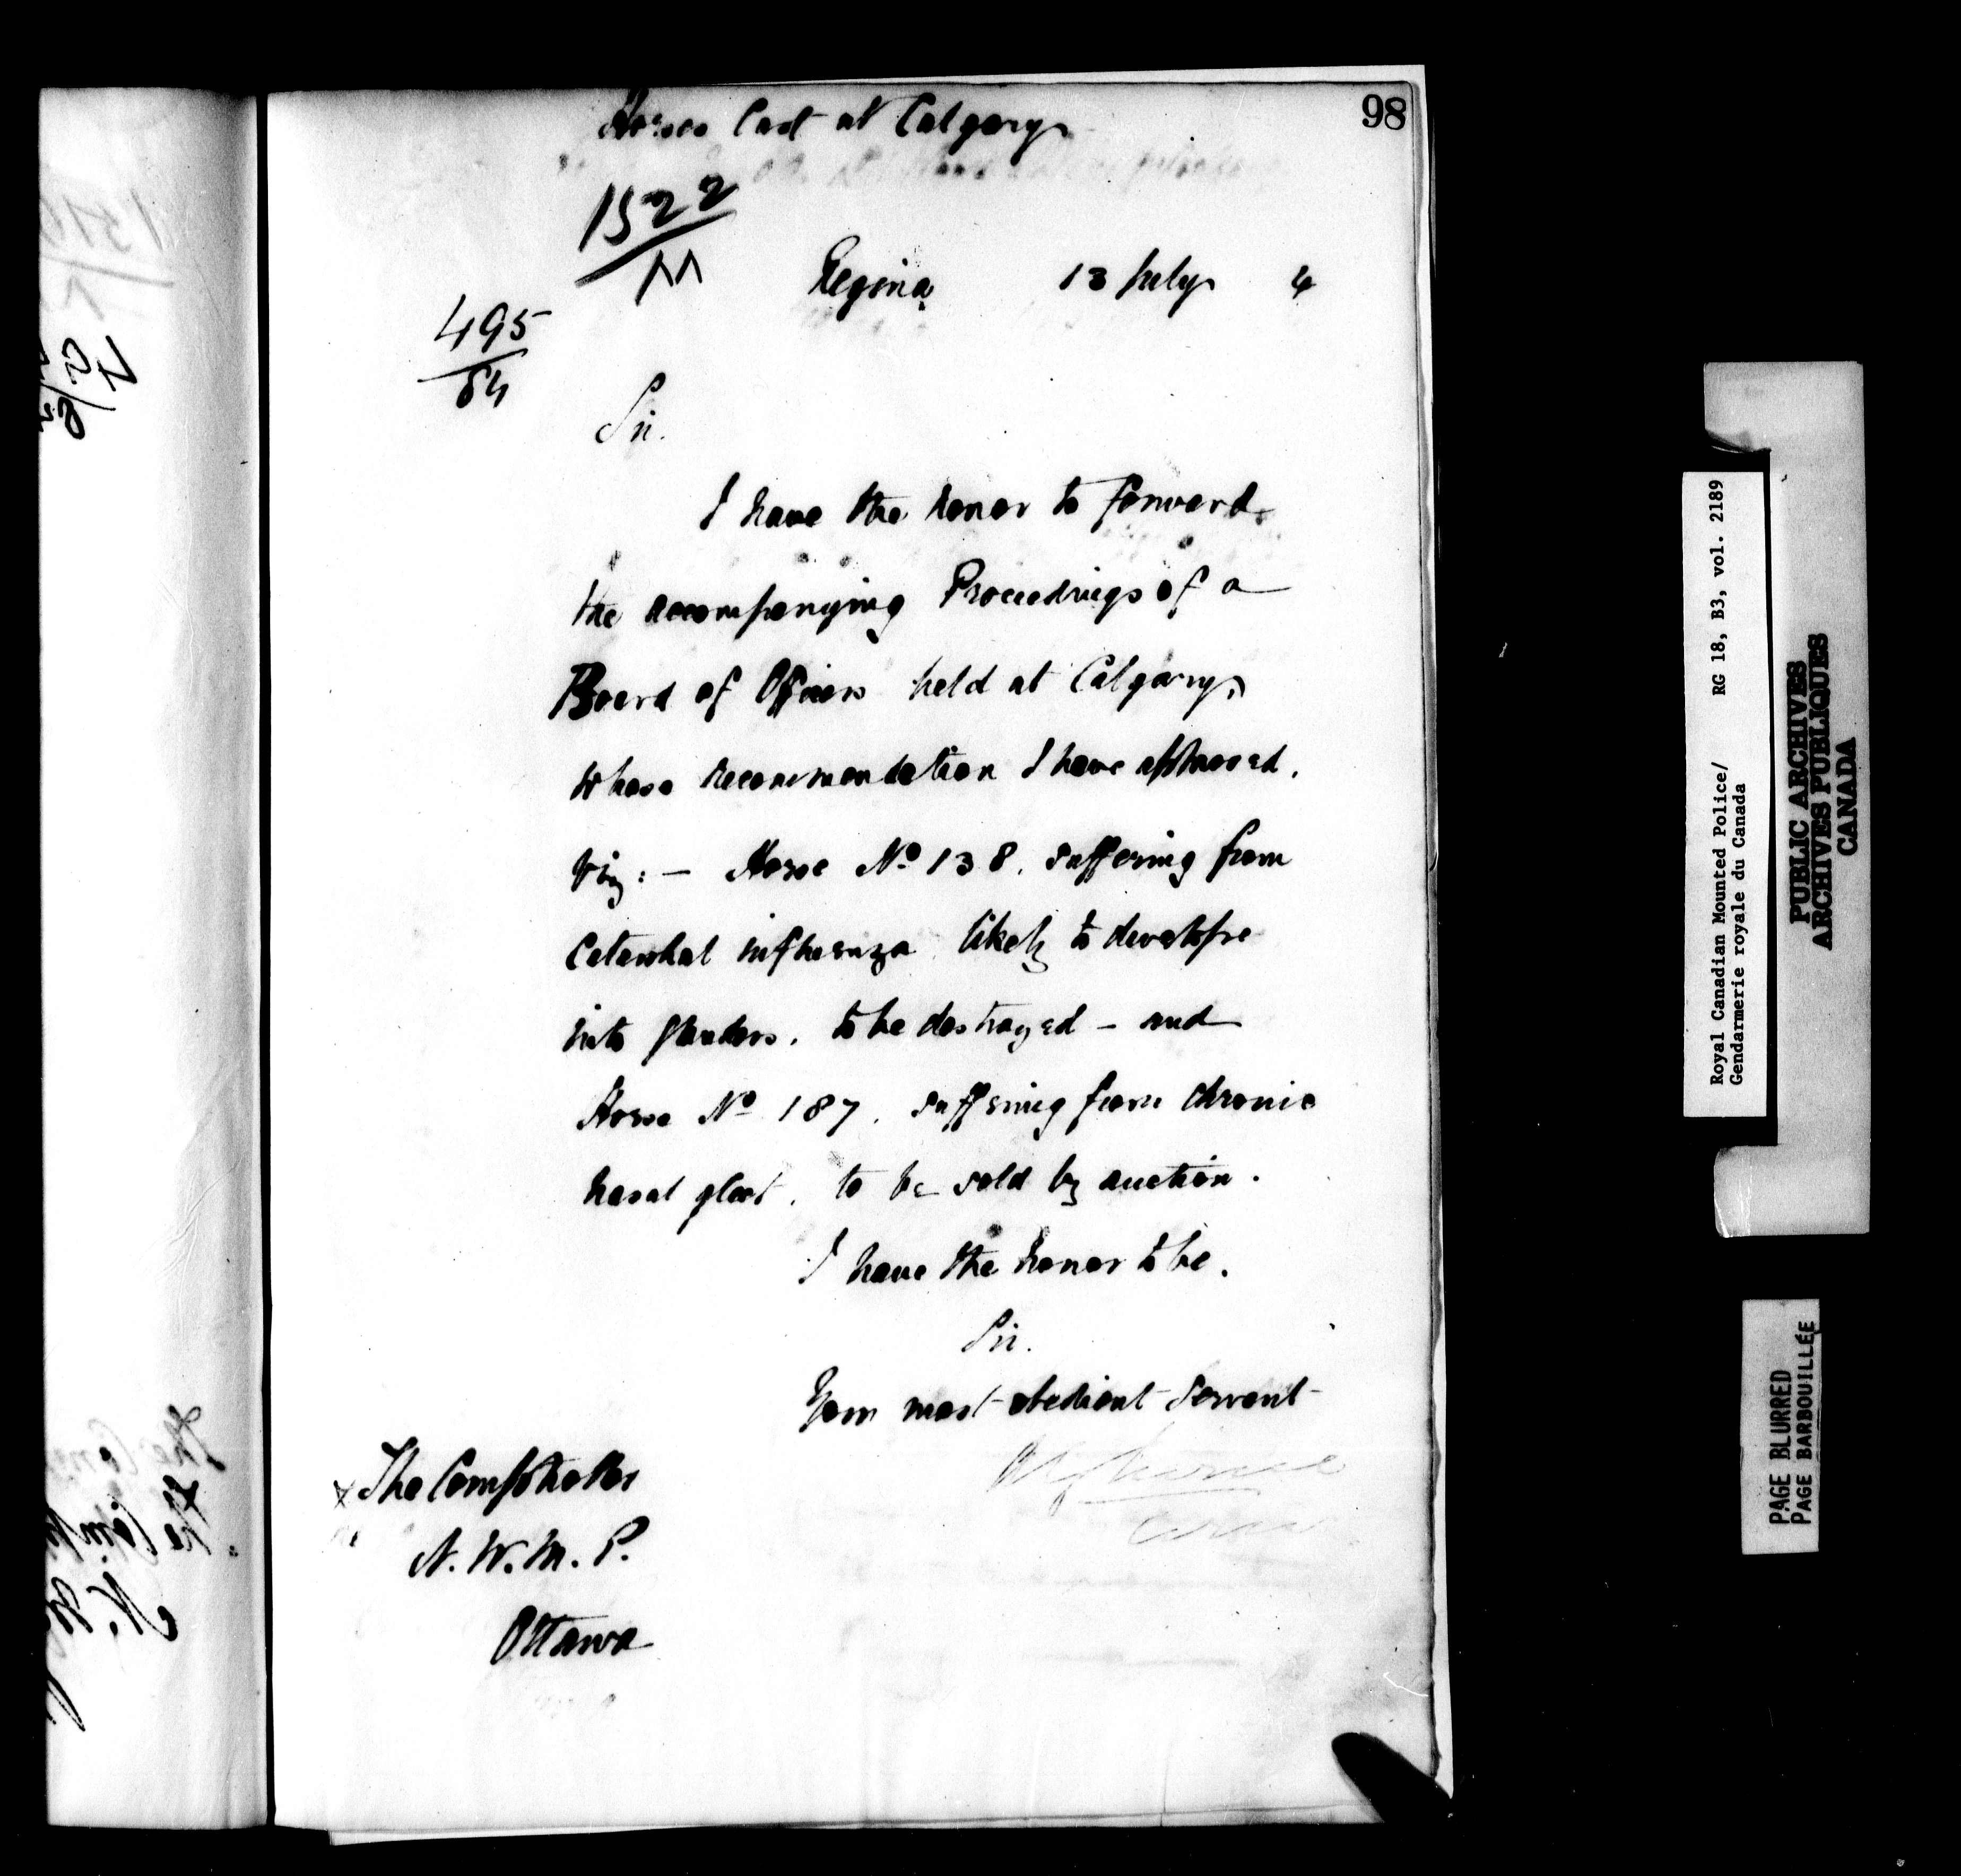 98
Horses Cast at Calgary
1522
M
Regina 13 July 4
495
84
Sir.
I have the honor to forward
the accompanying Proceedings of a
Board of Officers held at Calgary,
whose recommendation I have approved,
viz: — Horse No 138, suffering from
Catarrhal influenza likely to develope
into glanders, to be destroyed — and
Horse No 187, suffering from chronic
nasal gleet, to be sold by auction.
I have the honor to be,
Sir.
Your most obedient Servant
The Comptroller
N. W. M. P.
Ottawa
Royal Canadian Mounted Police/ RG 18, B3, vol. 2189
Gendarmerie royale du Canada
PUBLIC ARCHIVES
ARCHIVES PUBLIQUES
CANADA
PAGE BLURRED
PAGE BARBOUILLÉE